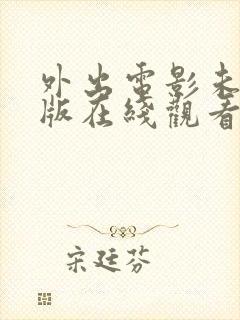 外出電影未
版在綫觀看
宋廷芬